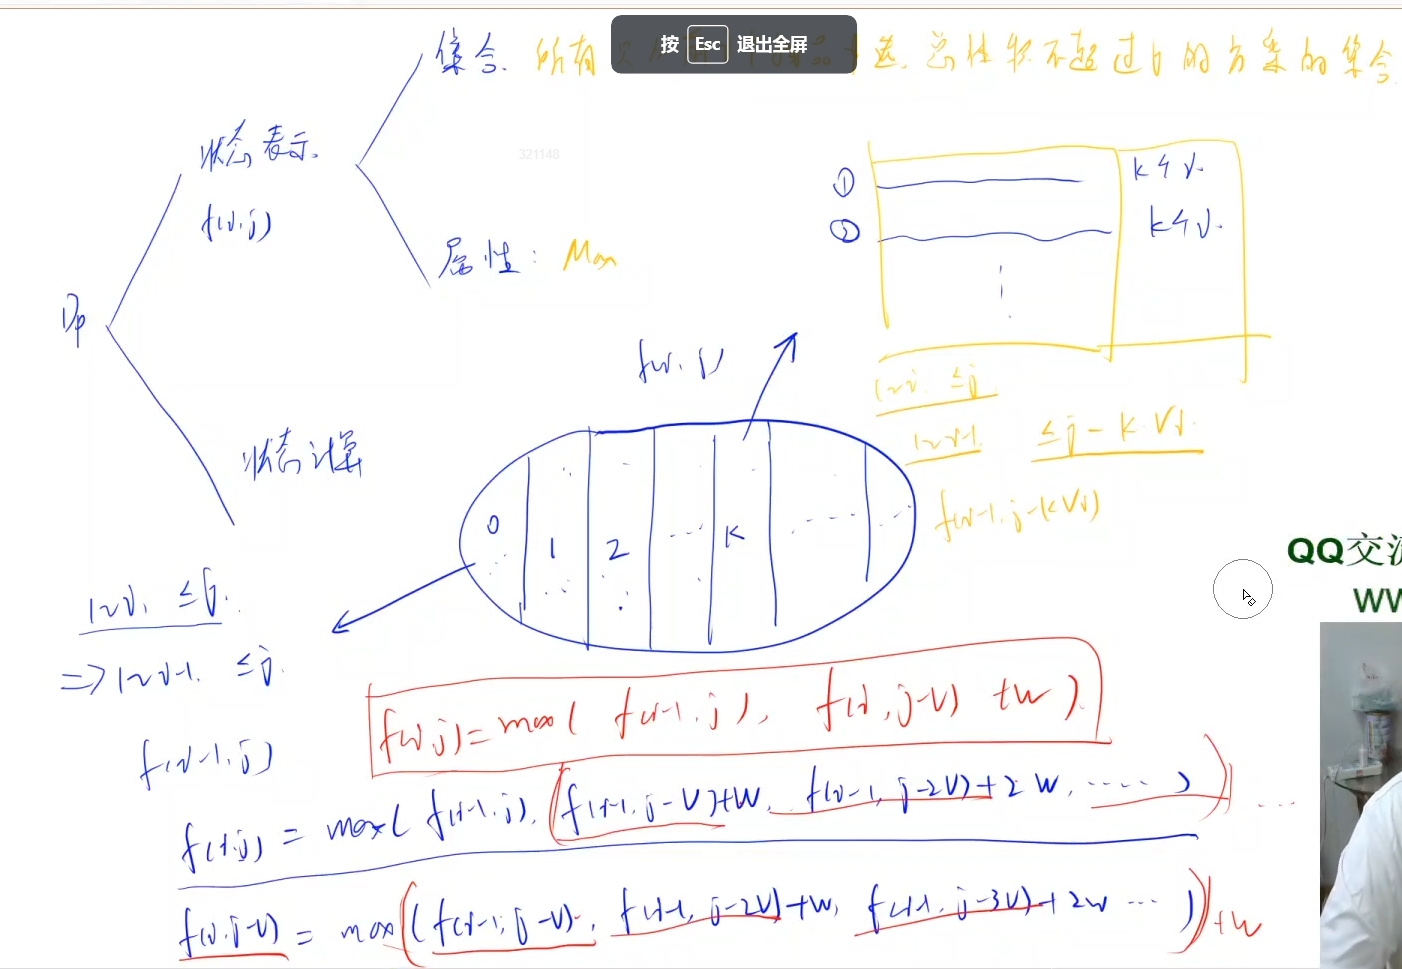 按 Esc 退出全屏
集合. 所有 选, 总体积不超过j的方案的集合
状态表示.
321148
f(i,j)
属性: Max
① k个i.
② k个i.
Dp
f(i,j)
1~i. ≤j
1~i-1. ≤j-k·Vi.
状态计算
f(i-1,j-kVi)
0 1 2 ...... K ......
QQ交流
WW
1~i, ≤j.
=> 1~i-1. ≤j.
f(i,j)=max( f(i-1,j), f(i,j-V) +W ).
f(i-1,j)
f(i,j) = max( f(i-1,j), f(i-1,j-V)+W, f(i-1,j-2V)+2W, ..... ) ...
f(i,j-V) = max(( f(i-1,j-V), f(i-1,j-2V)+W, f(i-1,j-3V)+2W ... ))+W